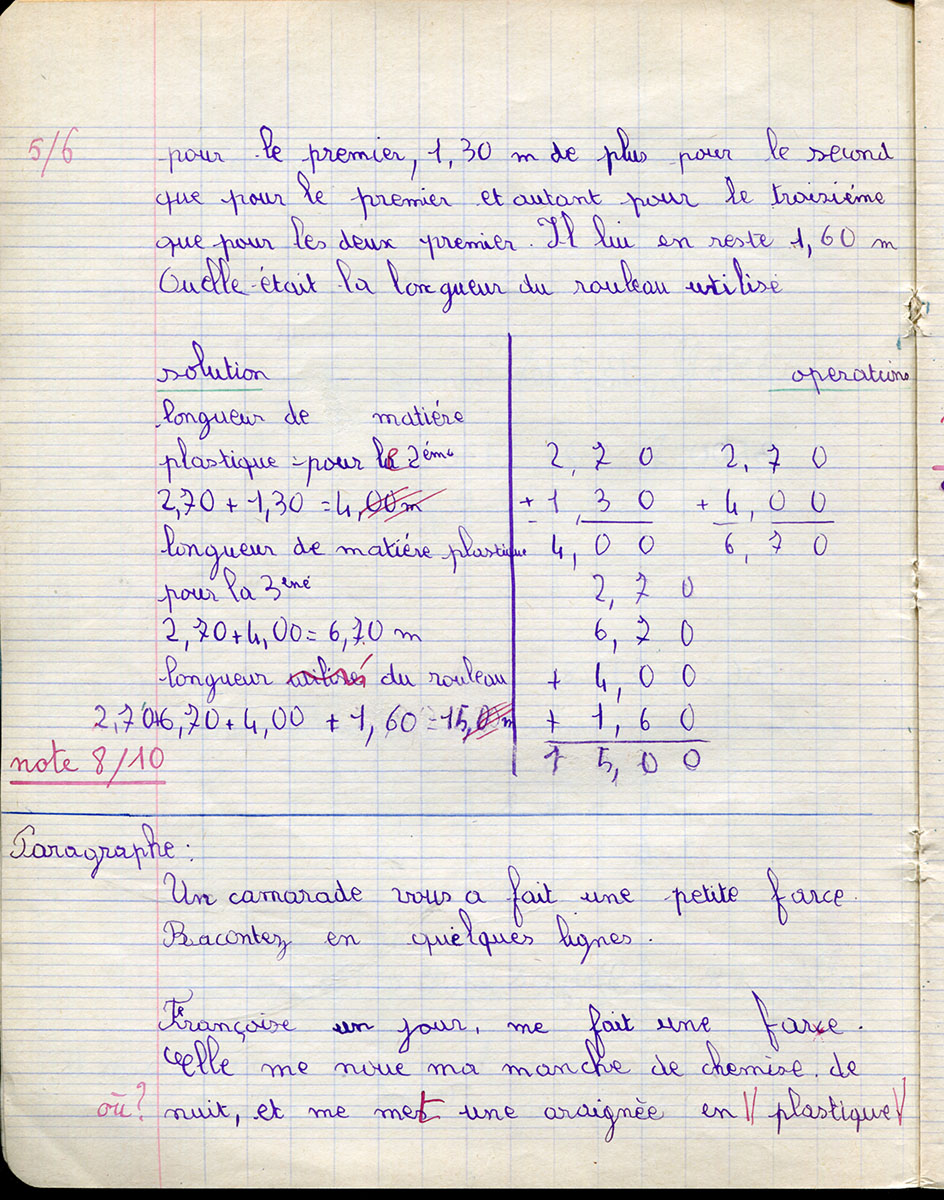 5/6
pour le premier, 1,30 m de plus pour le second
que pour le premier et autant pour le troisiéme
que pour les deux premier. Il lui en reste 1,60 m
Quelle était la longueur du rouleau utilisé
solution
operations
longueur de matiére
plastique pour le 2éme
2,70 + 1,30 = 4,00 m
longueur de matiére plastique
pour la 3émé
2,70 + 4,00 = 6,70 m
longueur du rouleau
2,70+6,70 + 4,00 + 1,60 = 15,00 m
2,70
+ 1,30
4,00
2,70
+ 4,00
6,70
2,70
6,70
+ 4,00
+ 1,60
15,00
note 8/10
Paragraphe :
Un camarade vous a fait une petite farce.
Racontez en quelques lignes.
Françoise un jour, me fait une farce.
elle me noue ma manche de chemise de
où? nuit, et me met une araignée en plastique